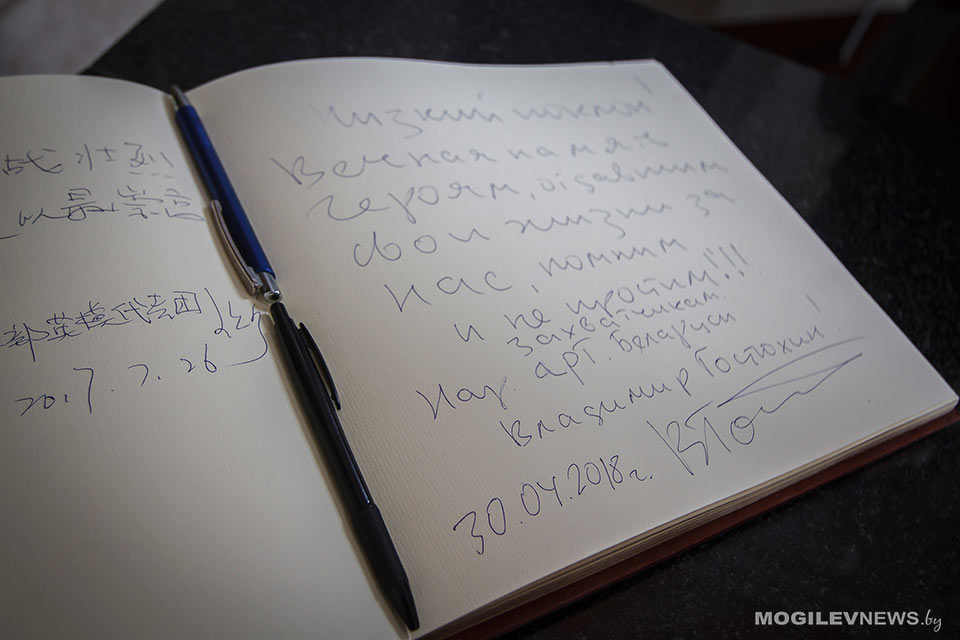 战壮烈!
以最崇高
部英模代表团
2017.7.26
Низкий поклон!
Вечная память
героям, отдавшим
свои жизни за
нас, помним
и не простим!!!
захватчикам.
Нар. арт. Беларуси!
Владимир Гостюхин
30.04.2018г.
MOGILEVNEWS.by